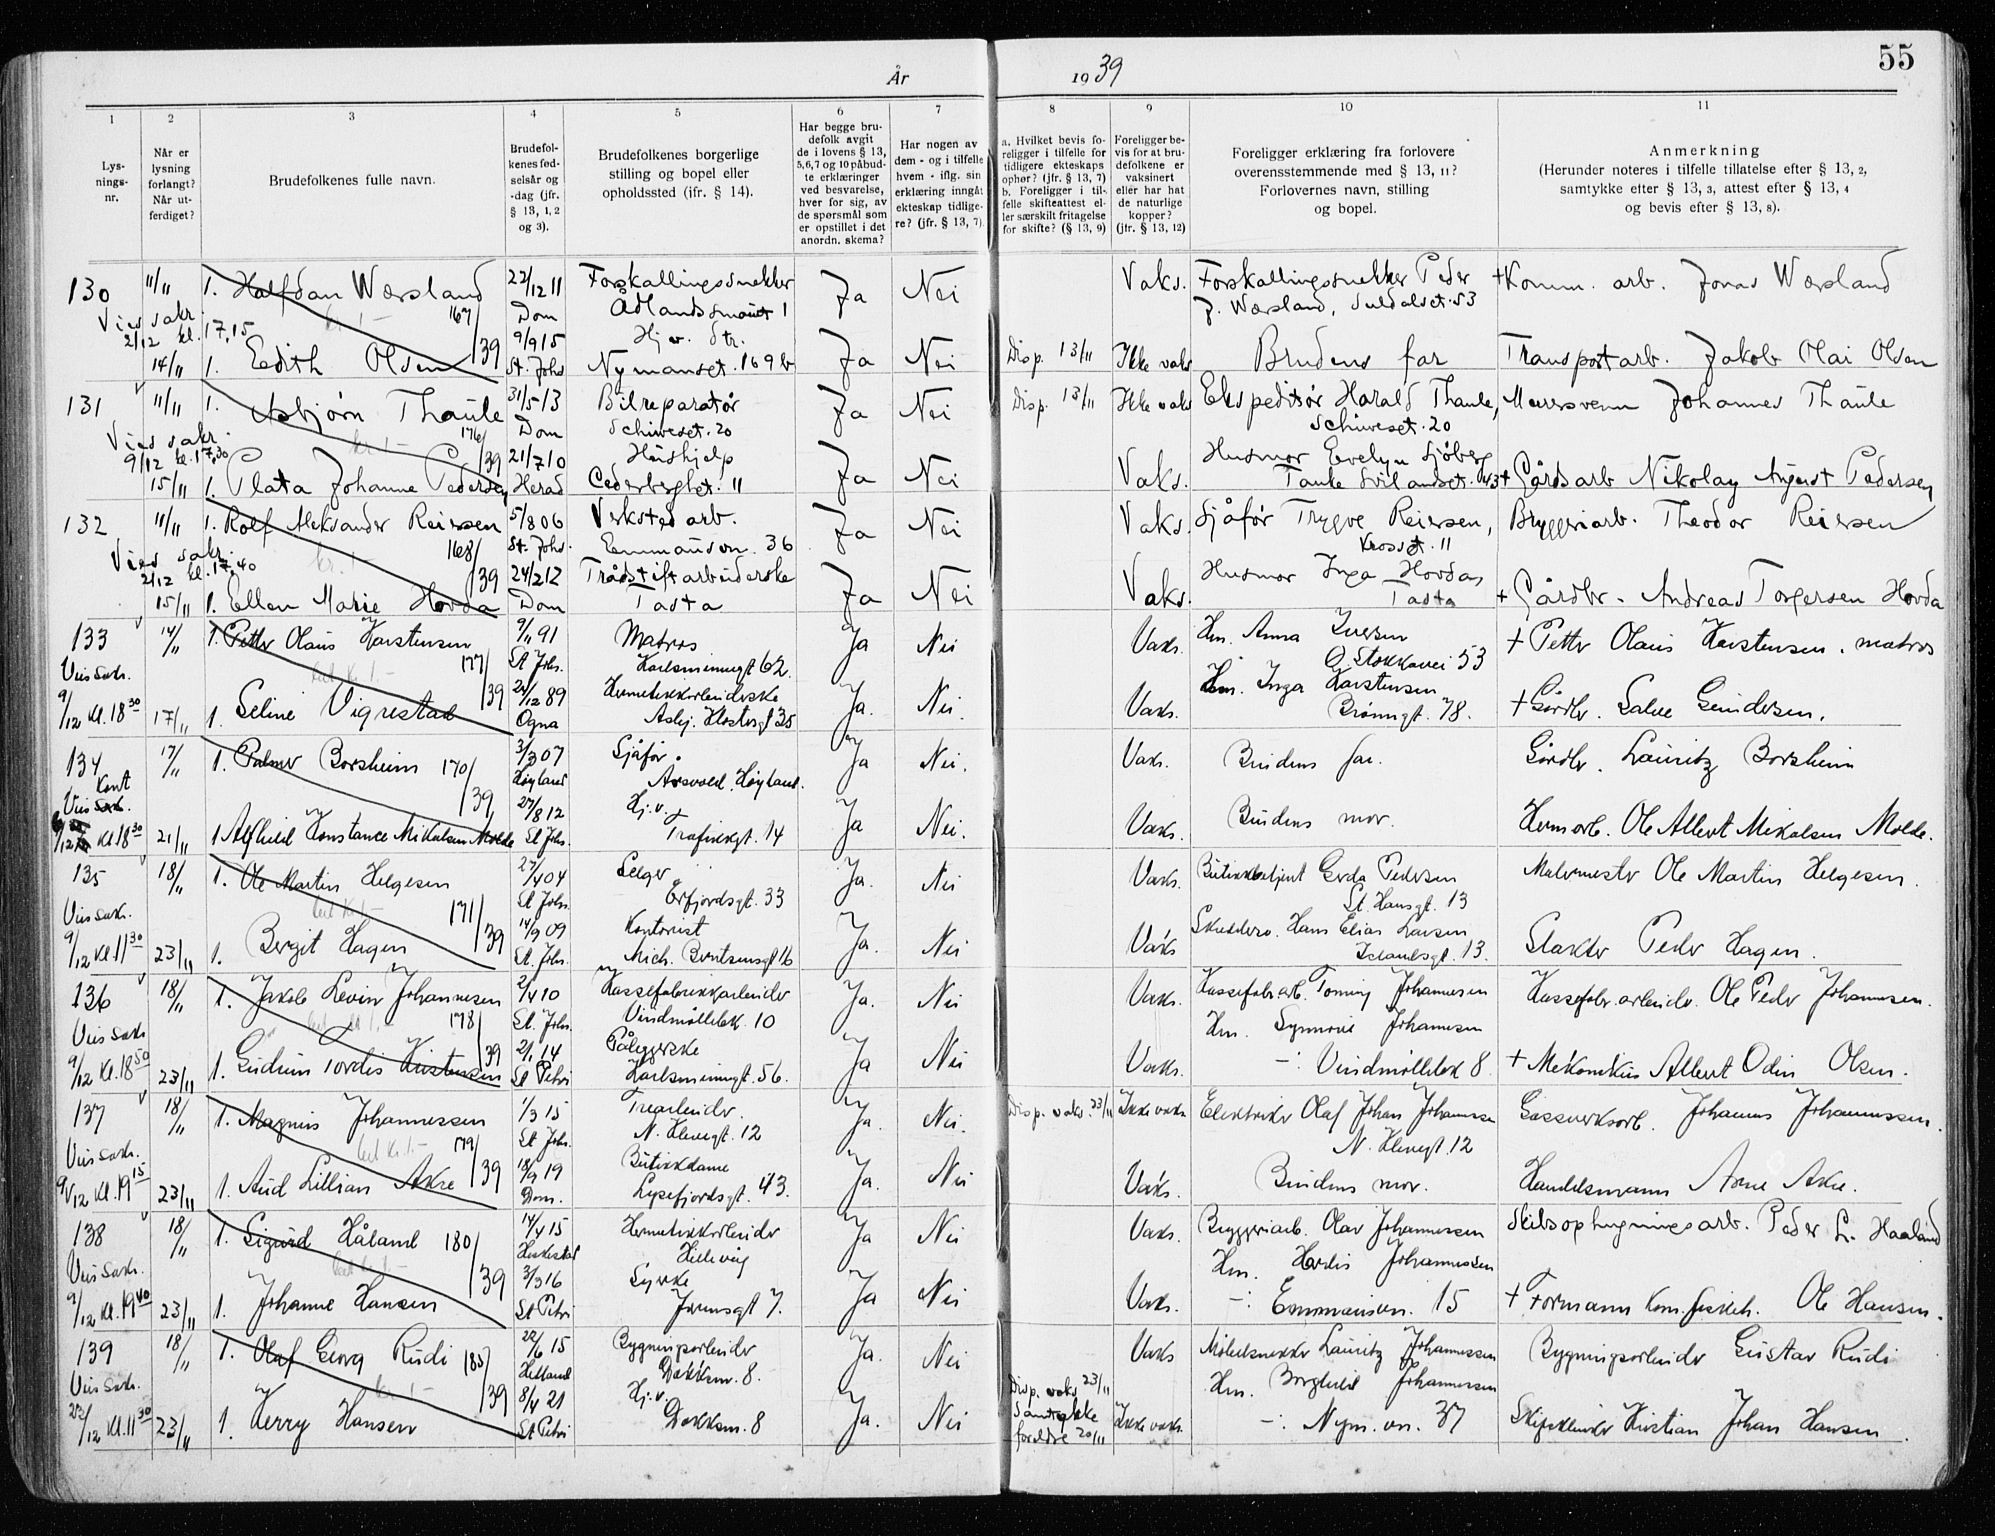 År 1939
55
1 2 3 4 5 6 7 8 9 10 11
Lysningsnr.
Når er lysning forlangt? Når utferdiget?
Brudefolkenes fulle navn.
Brudefolkenes fødselsår og -dag (jfr. § 13, 1, 2 og 3).
Brudefolkenes borgerlige stilling og bopel eller opholdssted (jfr. § 14).
Har begge brudefolk avgit de i lovens § 13, 5,6,7 og 10 påbudte erklæringer ved besvarelse, hver for sig, av de spørsmål som er opstillet i det anordn. skema?
Har nogen av dem - og i tilfelle hvem - iflg. sin erklæring inngått ekteskap tidligere? (jfr. § 13, 7).
a. Hvilket bevis foreligger i tilfelle for tidligere ekteskaps ophør? (jfr. § 13, 7)
b. Foreligger i tilfelle skifteattest eller særskilt fritagelse for skifte? (§ 13, 9)
Foreligger bevis for at brudefolkene er vaksinert eller har hat de naturlige kopper? (jfr. § 13, 12)
Foreligger erklæring fra forlovere overensstemmende med § 13, 11? Forlovernes navn, stilling og bopel.
Anmerkning
(Herunder noteres i tilfelle tillatelse efter § 13, 2, samtykke efter § 13, 3, attest efter § 13, 4 og bevis efter § 13, 8).
130 11/11 1. Halfdan Wærsland 167/39 22/12 11 Dom Forskallingssnekker Adlandssmauet 1 Ja Nei Vaks. Forskallingssnekker Peder J. Wærsland, Suldalsgt. 53 + Komm. arb. Jonas Wærsland
Vies sakr. 2/12 kl. 17,15
14/11 1. Edith Olsen 9/9 15 St. Johs Hj. v. dtr. Nymansgt. 169 b Ja Nei Disp. 13/11 Ikke vaks Brudens far Transportarb. Jakob Olai Olsen
131 11/11 1. Asbjørn Thaule 176/39 31/5 13 Dom Bilreparatør Schiwesgt. 20 Ja Nei Disp. 13/11 Ikke vaks Ekspeditør Harald Thaule, Schiwesgt. 20 Murersvenn Johannes Thaule
Vies sakr. 9/12 kl. 17,30
15/11 1. Plata Johanne Pedersen 21/7 10 Herad Hushjelp Cederberghgt. 11 Ja Nei Vaks. Husmor Evelyn Sjöberg Tanke Svilandsgt. 43 + Gårdsarb Nikolay August Pedersen
132 11/11 1. Rolf Aleksander Reiersen 168/39 5/8 06 St. Johs. Verksted arb. Emmausvn. 36 Ja Nei Vaks. Sjåfør Trygve Reiersen, Krossgt. 11 Bryggeriarb. Theodor Reiersen
Vies sakr. 2/12 kl. 17,40
15/11 1. Ellen Marie Hovda 24/2 12 Dom Trådstiftarbeiderske Tasta Ja Nei Vaks. Husmor Inga Hovda, Tasta + Gårdbr. Andreas Torgersen Hovda
133 14/11 1. Petter Olaus Karstensen 177/39 9/11 91 St Johs. Matros Karlsminnegt 62. Ja Nei Vaks. Hm. Anna Iversen Ø. Stokkavei 53 + Petter Olaus Karstensen. matros
Vies sakr. 9/12 Kl. 18 30
17/11 1. Seline Vigrestad 24/12 89 Ogna Hermetikkarbeiderske Asbj. Klostergt 35 Ja. Nei. Vaks. Hm. Inga Karstensen Brønngt. 78. + Gårdbr. Salve Gundersen.
134 17/11 1. Palmer Borsheim 170/39 3/3 07 Høyland Sjåfør. Asvold, Høyland. Ja Nei. Vaks. Brudens far. Gårdbr. Lauritz Borsheim
Kont Vies
6/12 Kl 18 30 21/11 1 Alfhild Konstance Mikalsen Molde 27/8 12 St Johs. Hj. v. Trafikkgt. 14 Ja Nei. Vaks. Brudens mor. Hermarb. Ole Albert Mikalsen Molde.
135 18/11 1. Ole Martin Helgesen 171/39 27/4 04 St Johs. Selger Erfjordsgt. 33 Ja. Nei Vaks. Butikkbetjent Gerda Pedersen St. Hansgt. 13 Malermester Ole Martin Helgesen.
Vies sakr. 9/12 Kl. 11 30
23/11 1. Bergit Hagen 14/9 09 St. Johs. Kontorist Mich. Berntsensgt 16 Ja. Nei Vaks Skredders. Hans Elias Larsen Islandsgt. 13. Slakter Peder Hagen.
136 18/11 1. Jakob Levin Johannesen 178/39 2/4 10 St. Johs. Kassefabrikkarbeider Vindmøllebk. 10 Ja. Nei Vaks. Kassefabr. arb. Tommy Johannesen Kassefabr. arbeider Ole Peder Johannesen.
Vies sakr 9/12 Kl. 18 50
23/11 1. Gudrun Tordis Kristensen 2/1 14 St Petri Påleggerske Karlsminnegt. 56. Ja Nei Vaks. Hm. Synnøve Johannesen -:- Vindmøllebk 8. + Mekanikus Albert Odin Olsen.
137 18/11 1. Magnus Johannessen 179/39 1/3 15 St Johs. Trearbeider. N. Klevegt. 12 Ja. Nei. Disp. vaks. 23/11 Ikke vaks Elektriker Olaf Johan Johannessen N. Klevegt. 12 Gassverksarb. Johannes Johannessen.
Vies sakr. 9/12 Kl. 19 15
23/11 1. Aud Lillian Akre 18/9 19 Dom. Butikkdame Lysefjordsgt. 43. Ja. Nei Vaks. Brudens mor. Handelsmann Arne Akre.
138 18/11 1. Sigurd Håland 180/39 14/4 15 Heskestad Hermetikkarbeider Hillevåg Ja Nei Vaks. Bryggeriarb. Olav Johannessen Skibsophugningsarb. Peder L. Haaland
Vies sakr. 9/12 Kl. 19 40
23/11 1. Johanne Hansen 3/3 16 St Petri Syerske Jorunsgt 7. Ja Nei Vaks. Hm. Hordis Johannessen -:- Emmausvn. 15 + Formann kom. fiskeh. Ole Hansen.
139 18/11 1. Olaf Georg Rudi 185/39 22/6 15 Hetland Bygningsarbeider Dokksm. 8. Ja. Nei Vaks Møbelsnekker Lauritz Johannessen Bygningsarbeider Gustav Rudi
Vies sakr. 23/12 Kl. 11 30
23/11 1. Kerry Hansen 8/4 21 St Petri Hj. v. Dokksm. 8 Ja. Nei Disp. vaks 23/11 Samtykke foreldre 20/11 Ikke vaks. Hm. Borghild Johannessen -:- Nym. vn. 37 Skipsarbeider Kristian Johan Hansen.